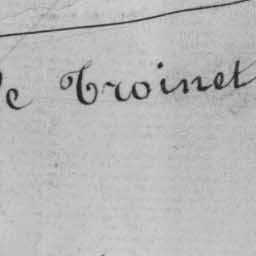 e Troinet